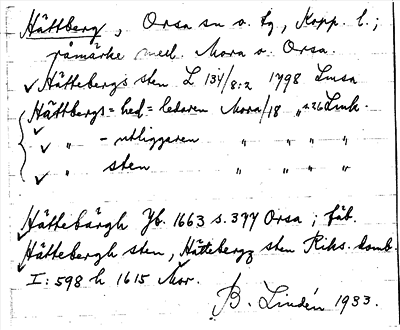 Hättberg, Orsa sn o. tg, Kopp. l.;
råmärke med. Mora o. Orsa.
Hättebergs sten L 134/8:2 1798 Lmsa
Hättbergs-hed-ledaren Mora/18 " s26 Link.
" - utliggaren " " " "
" sten " " " "
Hättebärgh Jb. 1663 s. 377 Orsa; fäb.
Hättebergh sten, Hättebergz sten Riks. komb.
I: 598 h 1615 Mor.
B. Lindén 1933.